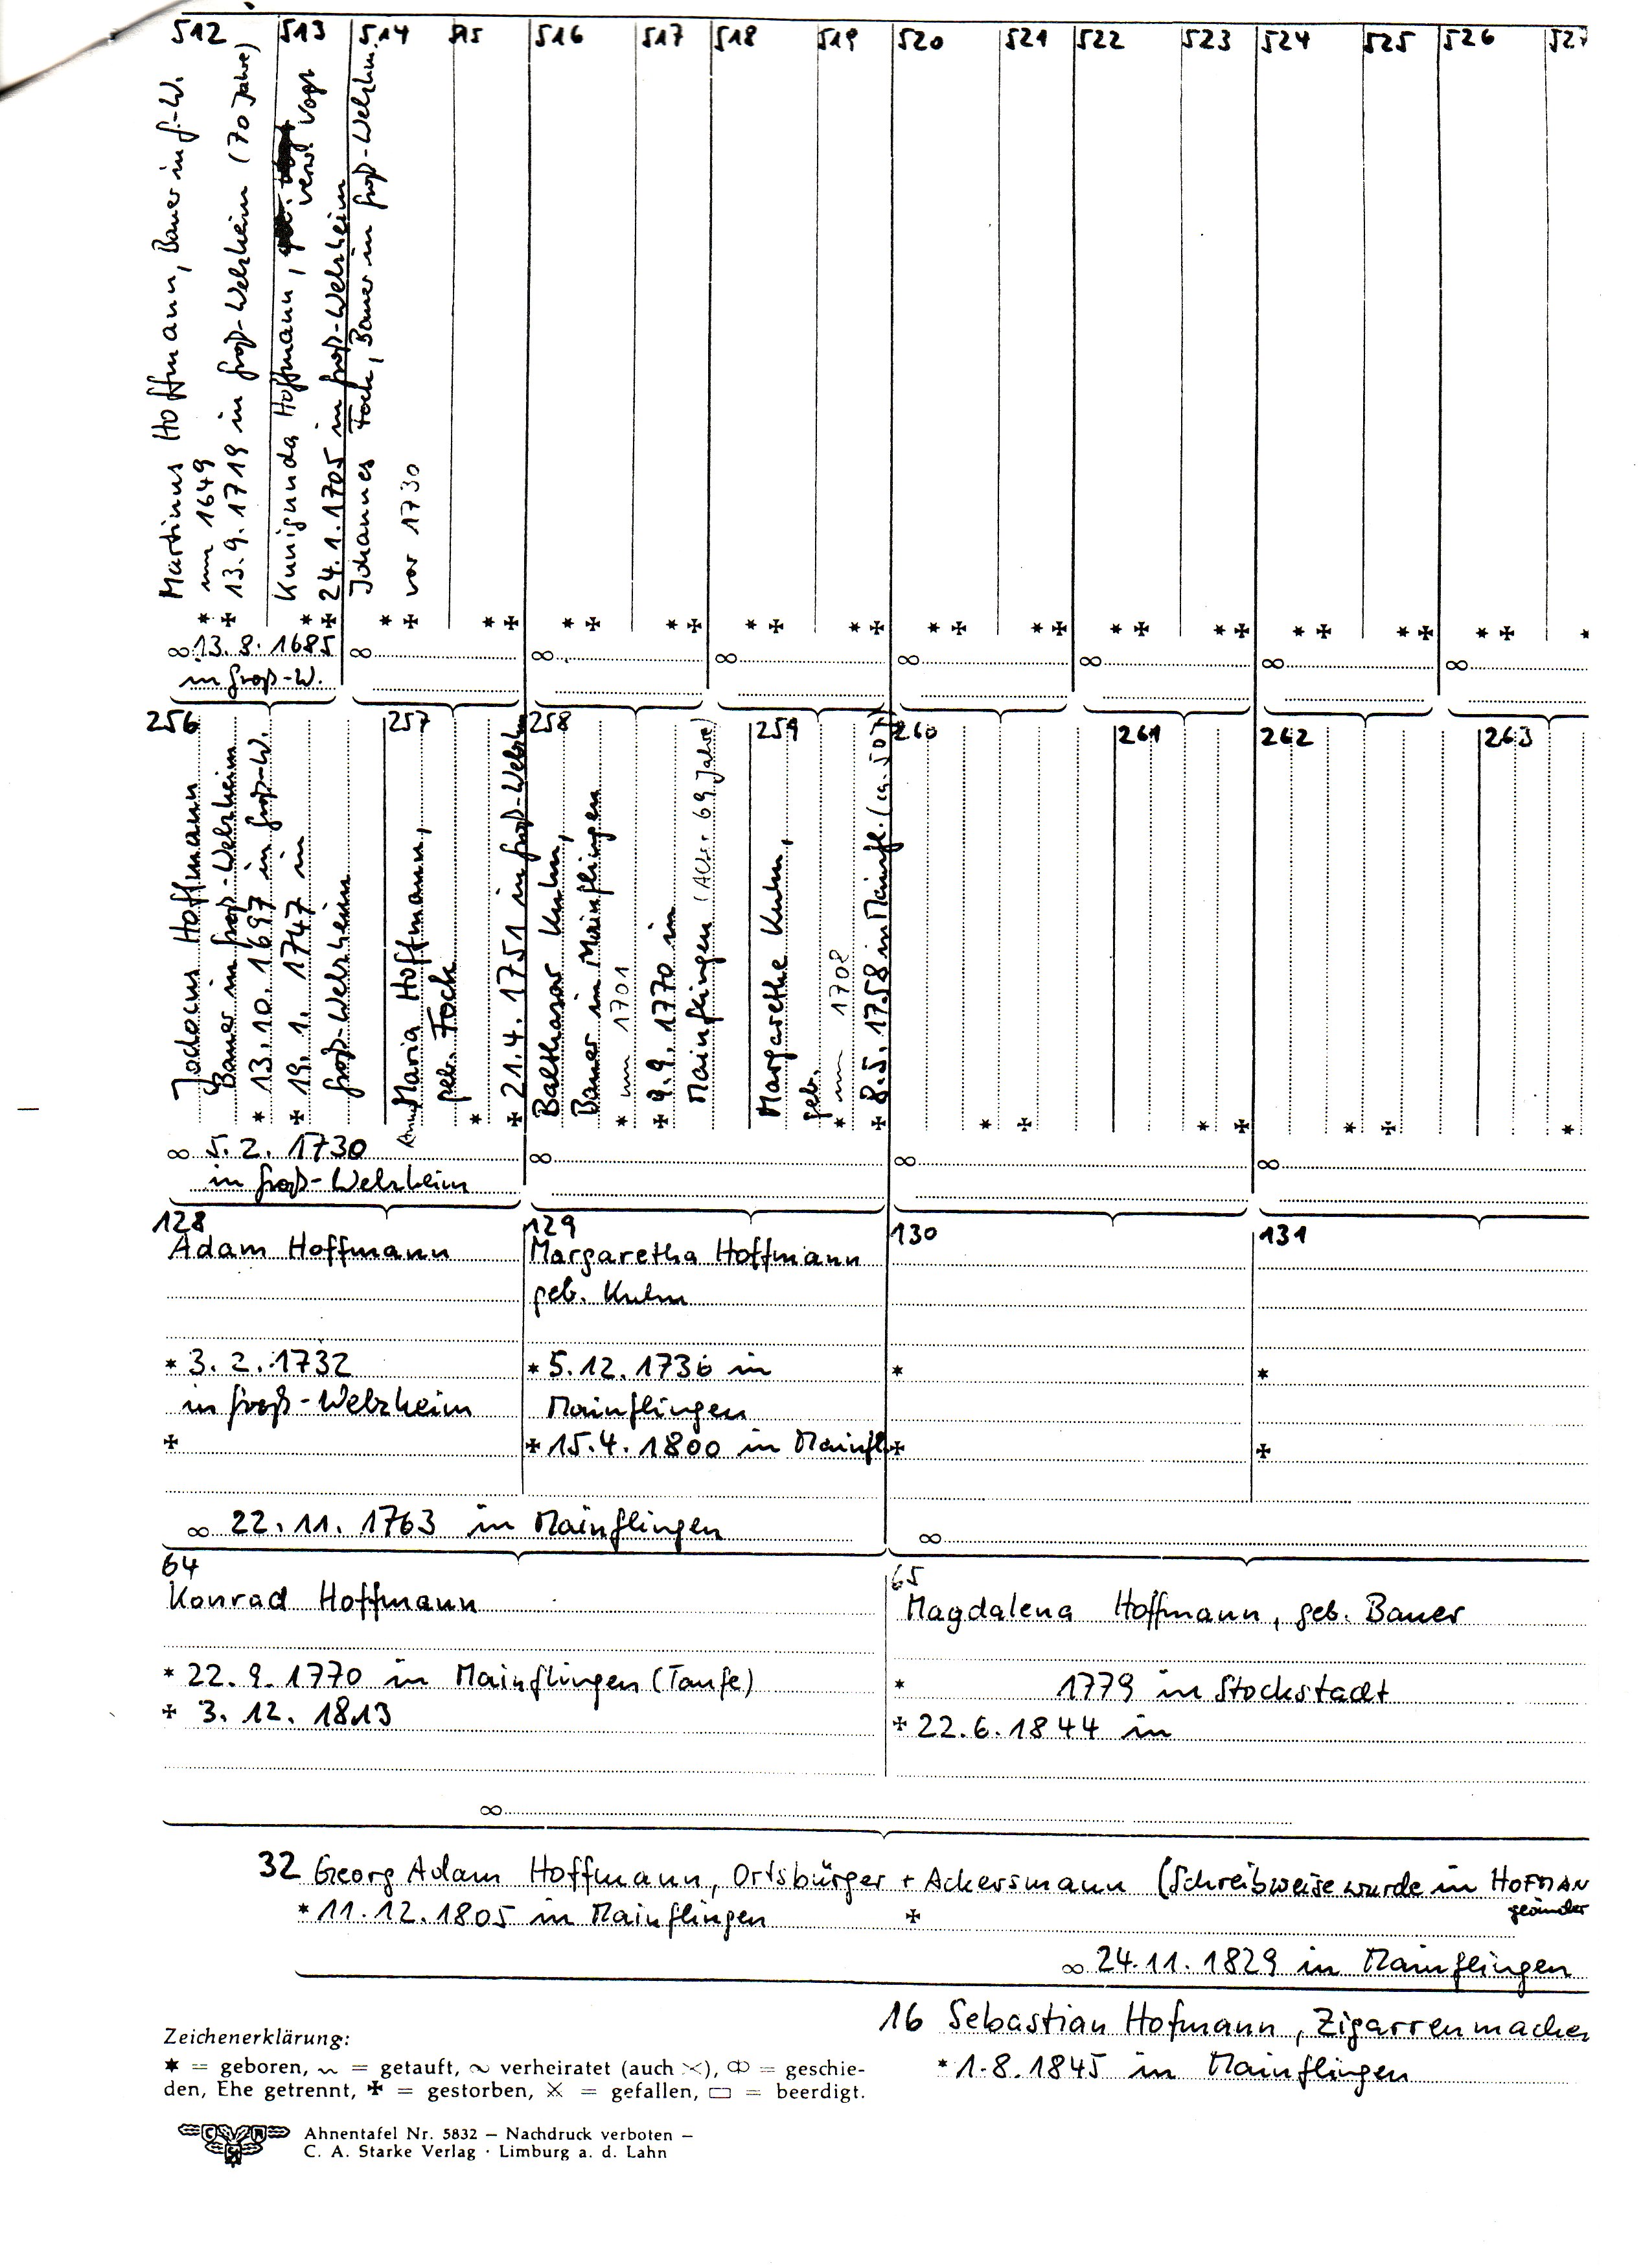 512 513 514 515 516 517 518 519 520 521 522 523 524 525 526 527
Martinus Hoffmann, Bauer in G.-W.
* um 1649
✠ 13.9.1719 in Groß-Welzheim (70 Jahre)
Kunigunda Hoffmann,
verw. Vogt
*
✠ 24.1.1705 in Groß-Welzheim
Johannes Fock, Bauer in Groß-Welzhm.
*
✠ vor 1730
* ✠ * ✠ * ✠ * ✠ * ✠ * ✠ * ✠ * ✠ * ✠ * ✠ * ✠ * ✠ *
∞ 13.8.1685 ∞ ∞ ∞ ∞ ∞ ∞ ∞
in Groß-W.
256 257 258 259 260 261 262 263
Jodocus Hoffmann
Bauer in Groß-Welzheim
* 13.10.1697 in Groß-W.
✠ 19.1.1747 in
Groß-Welzheim
Anna Maria Hoffmann,
geb. Fock
*
✠ 21.4.1751 in Groß-Welzhm
Balthasar Kuhn,
Bauer in Mainflingen
* um 1701
✠ 9.9.1770 in
Mainflingen (Alter 69 Jahre)
Margarethe Kuhn,
geb.
* um 1708
✠ 8.5.1758 in Mainfl. (ca. 50 J)
* ✠ * ✠ * ✠ *
∞ 5.2.1730 ∞ ∞ ∞
in Groß-Welzheim
128 129 130 131
Adam Hoffmann
* 3.2.1732
in Groß-Welzheim
✠
Margaretha Hoffmann
geb. Kuhn
* 5.12.1736 in
Mainflingen
✠ 15.4.1800 in Mainfl.
*
✠
*
✠
∞ 22.11.1763 in Mainflingen
∞
64
Konrad Hoffmann
* 22.9.1770 in Mainflingen (Taufe)
✠ 3.12.1813
65
Magdalena Hoffmann, geb. Bauer
* 1779 in Stockstadt
✠ 22.6.1844 in
∞
32 Georg Adam Hoffmann, Ortsbürger + Ackersmann (Schreibweise wurde in HOFMAN
geänder
* 11.12.1805 in Mainflingen ✠
∞ 24.11.1829 in Mainflingen
16 Sebastian Hofmann, Zigarrenmacher
* 1.8.1845 in Mainflingen
Zeichenerklärung:
✶ = geboren, ~ = getauft, ∞ verheiratet (auch ⚔), ⚮ = geschie-
den, Ehe getrennt, ✠ = gestorben, ⚔ = gefallen, ▭ = beerdigt.
Ahnentafel Nr. 5832 – Nachdruck verboten –
C. A. Starke Verlag · Limburg a. d. Lahn